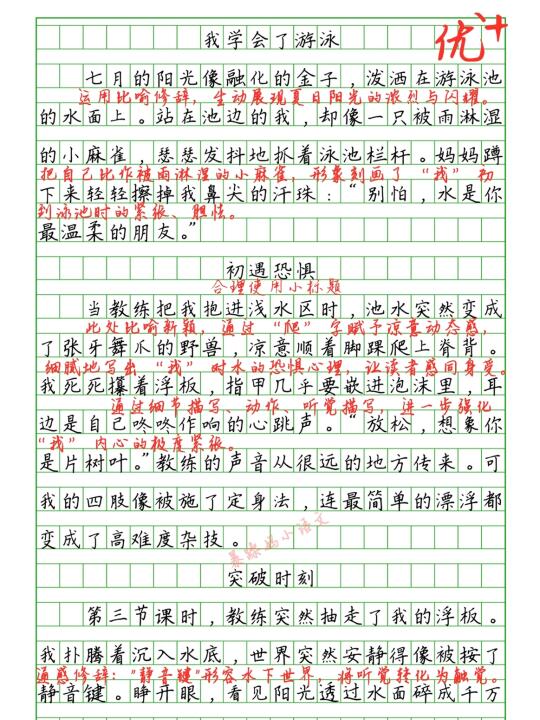 我学会了游泳
优++
七月的阳光像融化的金子，泼洒在游泳池
运用比喻修辞，生动展现夏日阳光的浓烈与闪耀。
的水面上。站在池边的我，却像一只被雨淋湿
的小麻雀，瑟瑟发抖地抓着泳池栏杆。妈妈蹲
把自己比作被雨淋湿的小麻雀，形象刻画了“我”初
下来轻轻擦掉我鼻尖的汗珠：“别怕，水是你
到泳池时的紧张、胆怯。
最温柔的朋友。”
初遇恐惧
合理使用小标题
当教练把我抱进浅水区时，池水突然变成
此处比喻新颖，通过“爬”字赋予凉意动态感，
了张牙舞爪的野兽，凉意顺着脚踝爬上脊背。
细腻地写出“我”对水的恐惧心理，让读者感同身受。
我死死攥着浮板，指甲几乎要嵌进泡沫里，耳
通过细节描写、动作、听觉描写，进一步强化
边是自己咚咚作响的心跳声。“放松，想象你
“我”内心的极度紧张。
是片树叶。”教练的声音从很远的地方传来。可
我的四肢像被施了定身法，连最简单的漂浮都
变成了高难度杂技。
突破时刻
第三节课时，教练突然抽走了我的浮板。
我扑腾着沉入水底，世界突然安静得像被按了
通感修辞："静音键"形容水下世界，将听觉转化为触觉。
静音键。睁开眼，看见阳光透过水面碎成千万